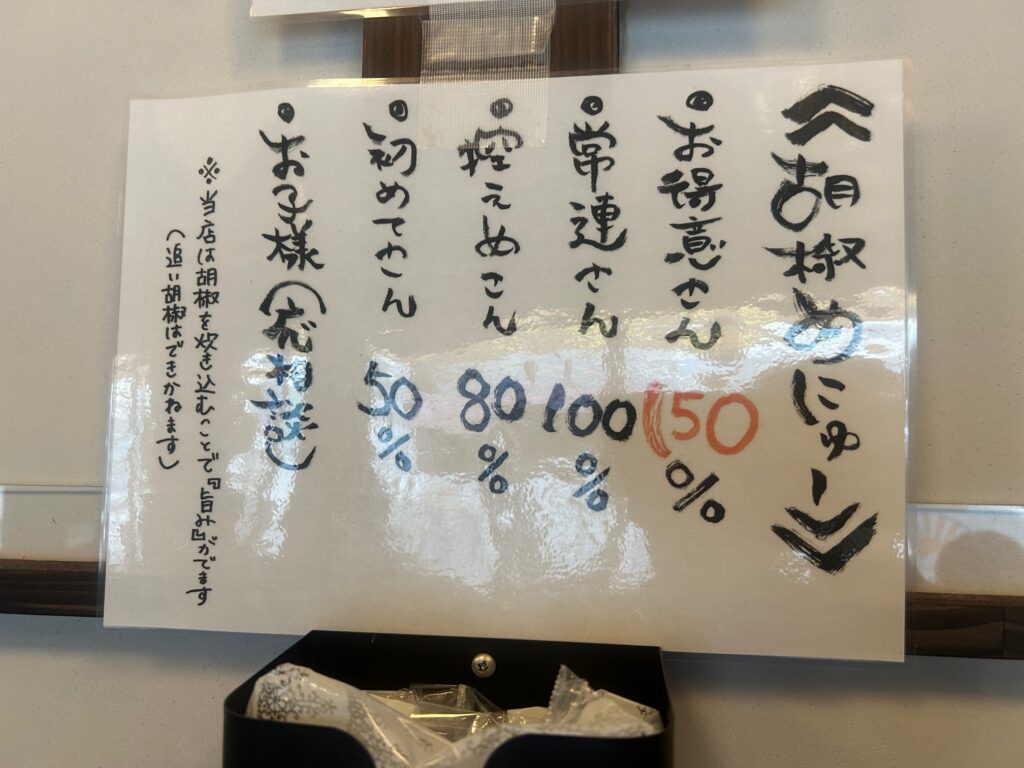 《胡椒めにゅー》
・お得意さん 150%
・常連さん 100%
・控えめさん 80%
・初めてさん 50%
・お子様（応相談）
※当店は胡椒を炊き込むことで『旨み』がでます
（追い胡椒はできかねます）